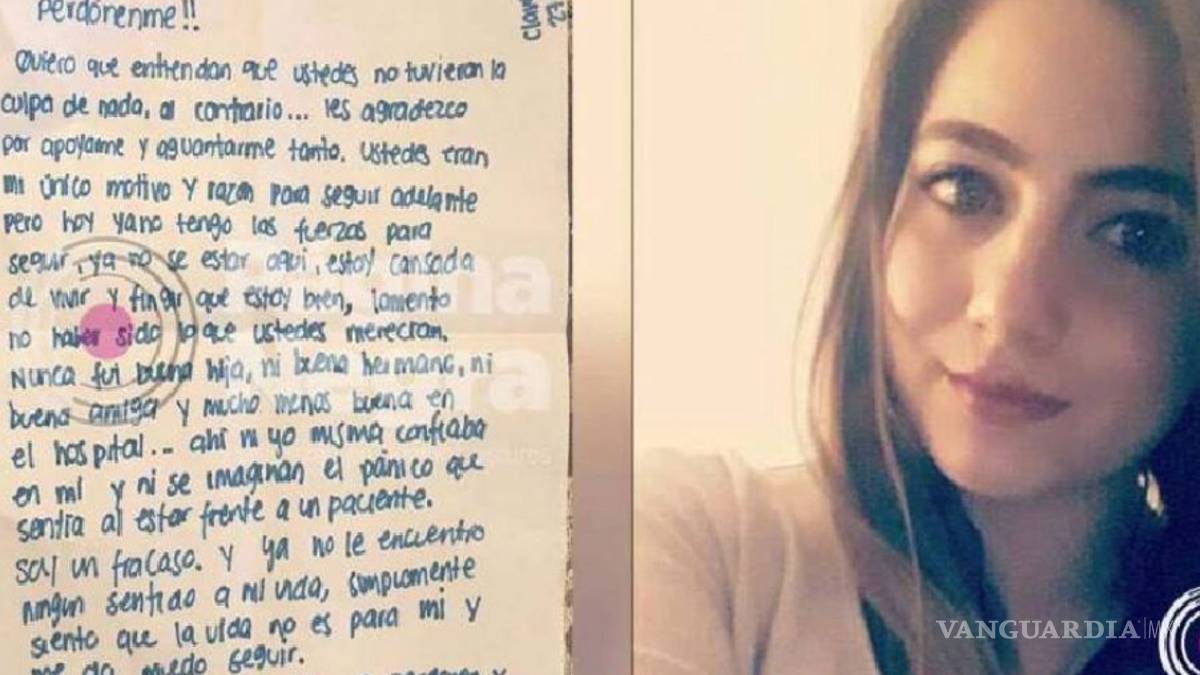 Perdónenme!!
Quiero que entiendan que ustedes no tuvieran la
culpa de nada, al contrario... les agradezco
por apoyarme y aguantarme tanto. Ustedes eran
mi único motivo y razón para seguir adelante
pero hoy ya no tengo las fuerzas para
seguir, ya no se estar aqui, estoy cansada
de vivir y fingir que estoy bien, lamento
no haber sido lo que ustedes merecían.
Nunca fui buena hija, ni buena hermana, ni
buena amiga y mucho menos buena en
el hospital... ahí ni yo misma confiaba
en mí y ni se imaginan el pánico que
sentía al estar frente a un paciente.
Soy un fracaso. Y ya no le encuentro
ningun sentido a mi vida, simplemente
siento que la vida no es para mi y
me da miedo seguir.
VANGUARDIA|MX